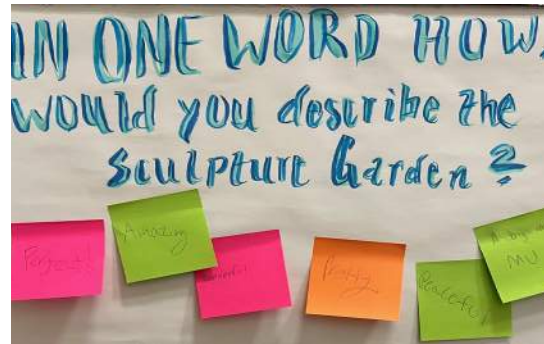 IN ONE WORD HOW
WOULD you describe the
Sculpture Garden?
Amazing
Pretty
Peaceful
MU